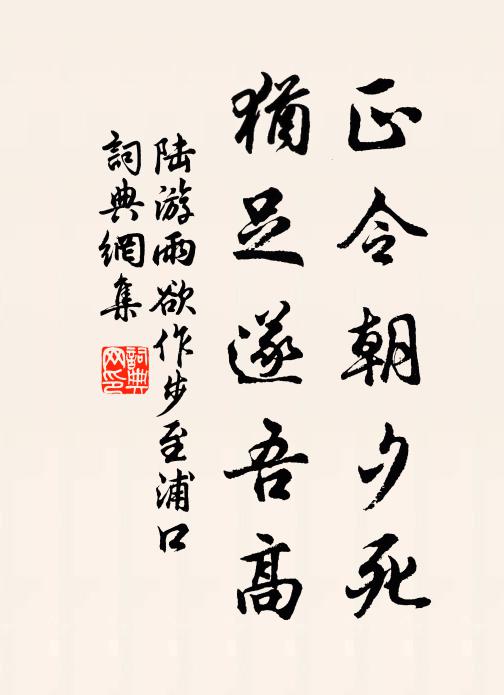 正令朝夕死
猶足遂吾高
陆游雨欲作步至浦口
詞典網集
詞典网印